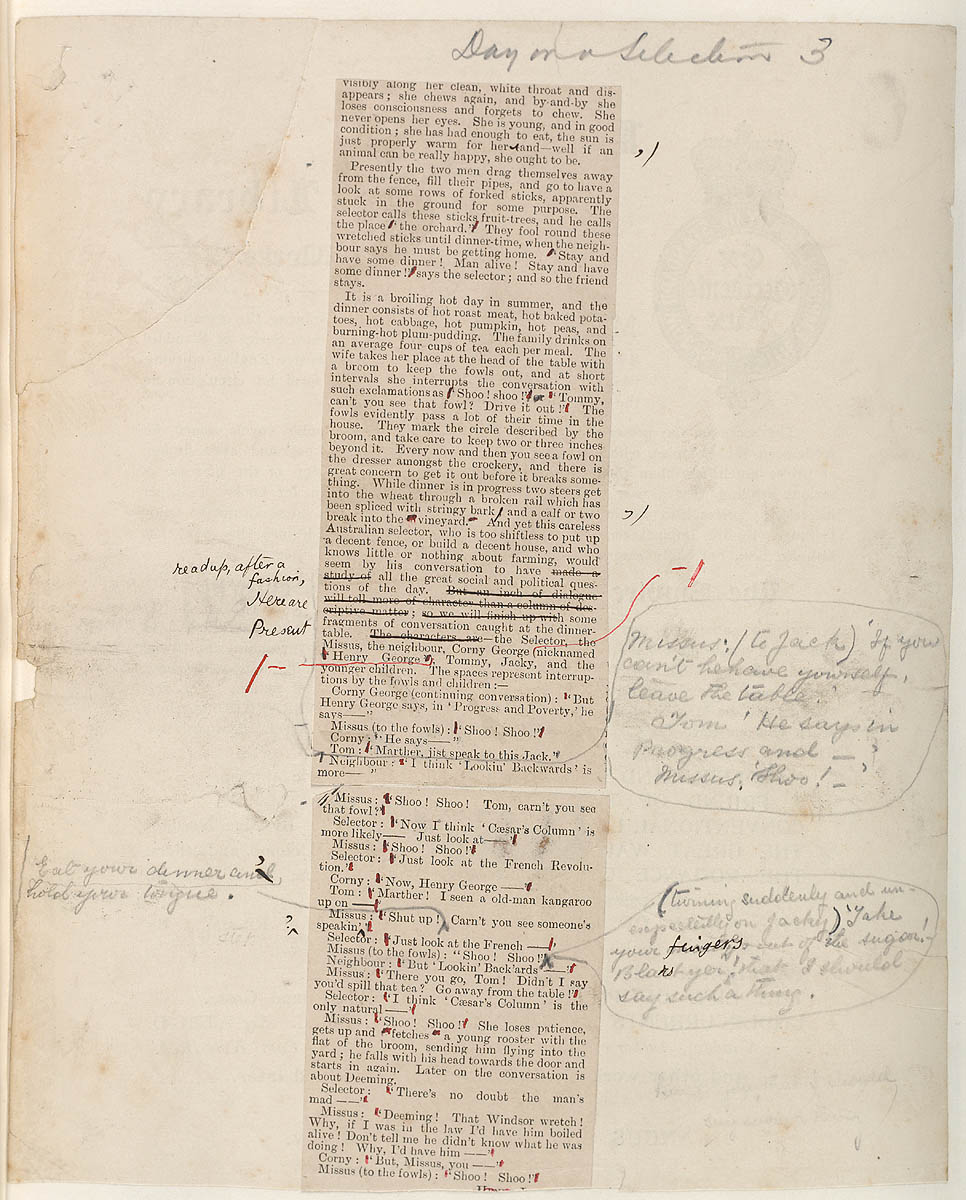 Day on a Selection 3
visibly along her clean, white throat and dis-
appears; she chews again, and by-and-by she
loses consciousness and forgets to chew. She
never opens her eyes. She is young, and in good
condition; she has had enough to eat, the sun is
just properly warm for her and—well if an
animal can be really happy, she ought to be.
,/
Presently the two men drag themselves away
from the fence, fill their pipes, and go to have a
look at some rows of forked sticks, apparently
stuck in the ground for some purpose. The
selector calls these sticks fruit-trees, and he calls
the place "the orchard." They fool round these
wretched sticks until dinner-time, when the neigh-
bour says he must be getting home. "Stay and
have some dinner! Man alive! Stay and have
some dinner!" says the selector; and so the friend
stays.
It is a broiling hot day in summer, and the
dinner consists of hot roast meat, hot baked pota-
toes, hot cabbage, hot pumpkin, hot peas, and
burning-hot plum-pudding. The family drinks on
an average four cups of tea each per meal. The
wife takes her place at the head of the table with
a broom to keep the fowls out, and at short
intervals she interrupts the conversation with
such exclamations as "Shoo! shoo!" or "Tommy,
can't you see that fowl? Drive it out!" The
fowls evidently pass a lot of their time in the
house. They mark the circle described by the
broom, and take care to keep two or three inches
beyond it. Every now and then you see a fowl on
the dresser amongst the crockery, and there is
great concern to get it out before it breaks some-
thing. While dinner is in progress two steers get
into the wheat through a broken rail which has
been spliced with stringy bark, and a calf or two
break into the "vineyard." And yet this careless
,/
Australian selector, who is too shiftless to put up
a decent fence, or build a decent house, and who
knows little or nothing about farming, would
seem by his conversation to have made a
study of all the great social and political ques-
tions of the day. But an inch of dialogue
will tell more of character than a column of des-
criptive matter; so we will finish up with some
fragments of conversation caught at the dinner-
table. The characters are—the Selector, the
Missus, the neighbour, Corny George (nicknamed
"Henry George"), Tommy, Jacky, and the
younger children. The spaces represent interrup-
tions by the fowls and children:—
read up, after a
fashion,
Here are
Present
-/
/-
Corny George (continuing conversation): "But
Henry George says, in 'Progress and Poverty,' he
says——"
Missus (to the fowls): "Shoo! Shoo!"
Corny: "He says——"
Tom: "Marther, jist speak to this Jack."
Missus: (to Jack) 'If you
can't behave yourself,
leave the table.'
Tom 'He says in
Progress and — '
Missus, 'Shoo! —
Neighbour: "I think 'Lookin' Backwards' is
more—— "
Missus: "Shoo! Shoo! Tom, carn't you see
that fowl?"
Selector: "Now I think 'Cæsar's Column' is
more likely—— Just look at——"
Missus: "Shoo! Shoo!"
Selector: "Just look at the French Revolu-
tion."
Corny: "Now, Henry George ——"
Tom: "Marther! I seen a old-man kangaroo
up on ——"
Missus: "Shut up! Carn't you see someone's
speakin'
Eat your dinner and
hold your tongue.
?
Selector: "Just look at the French ——"
Missus (to the fowls): "Shoo! Shoo!"
(turning suddenly and un-
expectedly on Jacky) 'Take
your fingers out of the sugar!—
Blarst yer! that I should
say such a thing.
Neighbour: "But 'Lookin' Back'ards' ——"
Missus: "There you go, Tom! Didn't I say
you'd spill that tea? Go away from the table!"
Selector: "I think 'Cæsar's Column' is the
only natural ——"
Missus: "Shoo! Shoo!" She loses patience,
gets up and "fetches" a young rooster with the
flat of the broom, sending him flying into the
yard; he falls with his head towards the door and
starts in again. Later on the conversation is
about Deeming.
Selector: "There's no doubt the man's
mad ——"
Missus: "Deeming! That Windsor wretch!
Why, if I was in the law I'd have him boiled
alive! Don't tell me he didn't know what he was
doing! Why, I'd have him ——"
Corny: "But, Missus, you ——"
Missus (to the fowls): "Shoo! Shoo!"